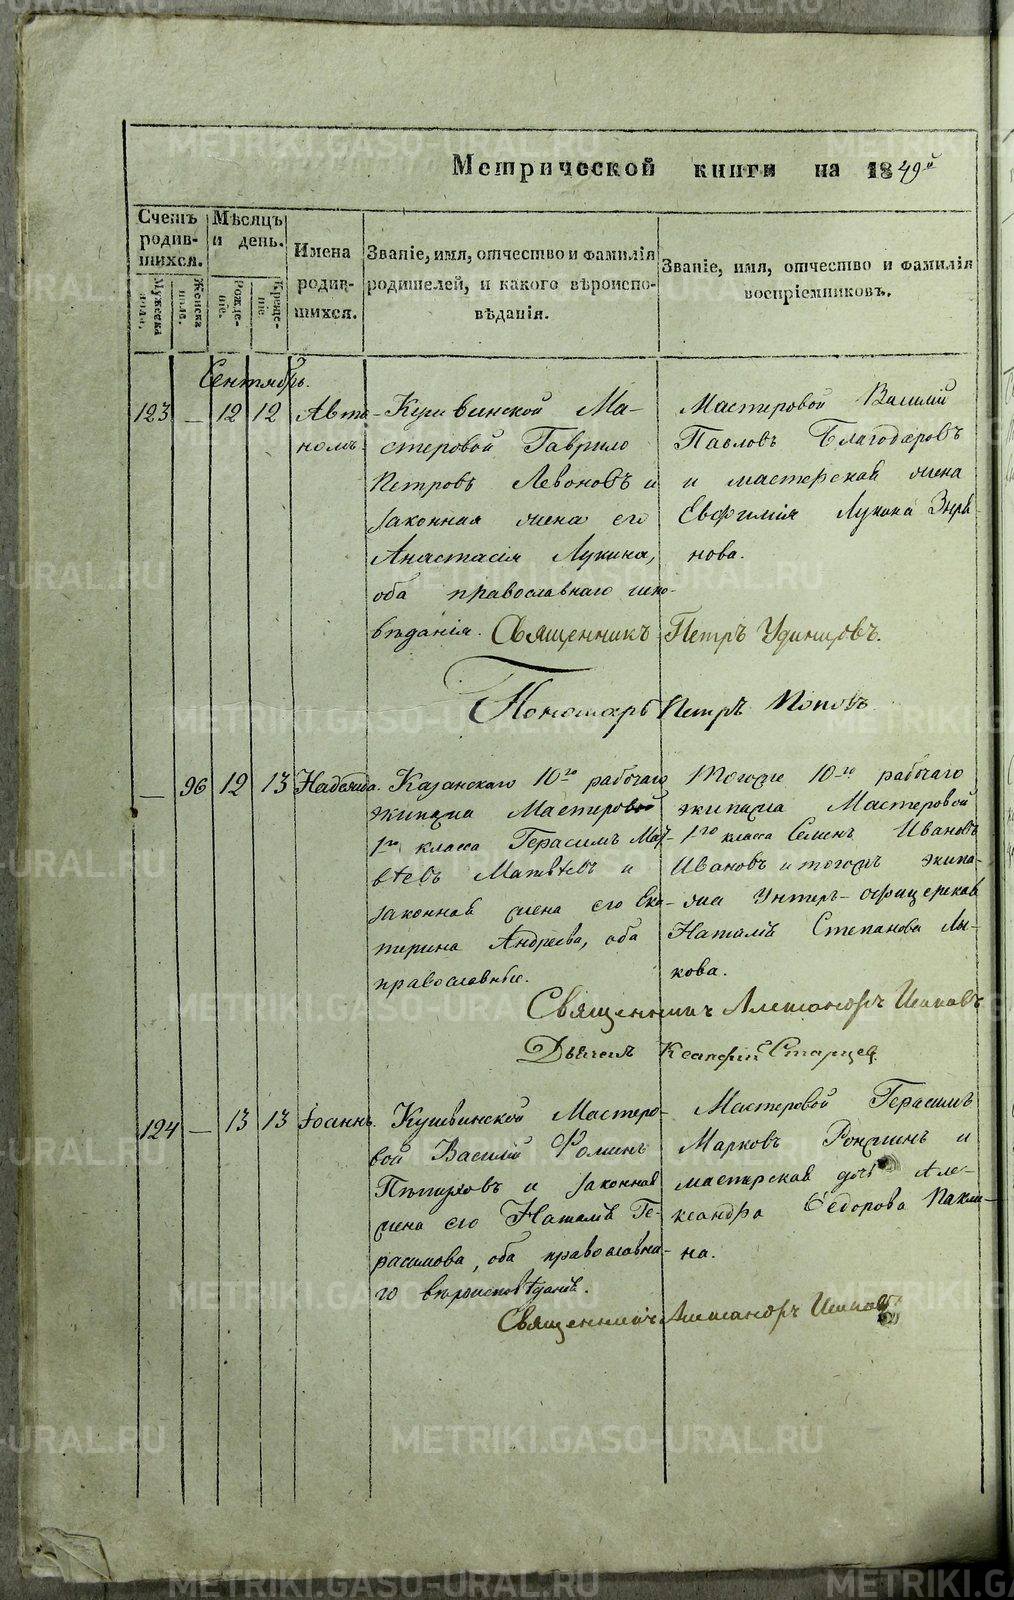 Метрической книги на 1849й
Счетъ родившихся.
Мѣсяцъ и день.
Имена родившихся.
Званіе, имя, отчество и фамилія родителей, и какого вѣроисповѣданія.
Званіе, имя, отчество и фамилія воспріемниковъ.
Мужеска пола.
Женска пола.
Рождені­е.
Крещеніе.
Сентябрь.
123 — 12 12 Авто-
номъ.
Кушвинской Ма-
стеровой Гаврило
Петровъ Левоновъ и
законная жена его
Анастасія Лукина,
оба православнаго испо-
вѣданія.
Мастеровой Василий
Павловъ Благодаровъ
и мастерская жена
Евфимія Лукина Зыря-
нова.
Священникъ Петръ Удинцовъ.
Пономарь Петръ Поповъ
— 96 12 13 Надежда.
Казанскаго 10го рабочаго
экипажа Мастеровой
1го класса Герасимъ Мат-
вѣевъ Матвѣевъ и
законная жена его Ека-
терина Андреева, оба
православные.
Тогоже 10го рабочаго
экипажа Мастеровой
1го класса Семенъ Ивановъ
Ивановъ и тогожъ экипа-
жа Унтеръ-офицерская
Наталія Степанова Лы-
кова.
Священникъ Александръ
Дьячекъ Старцев
124 — 13 13 Іоаннъ.
Кушвинской Мастеро-
вой Василий Фоминъ
и законная
жена его Наталія Ге-
расимова, оба православна-
го вѣроисповѣданія.
Мастеровой Герасимъ
Марковъ и
мастерская дочь Але-
ксандра Федорова Пакли-
на.
Священникъ Александръ
METRIKI.GASO-URAL.RU